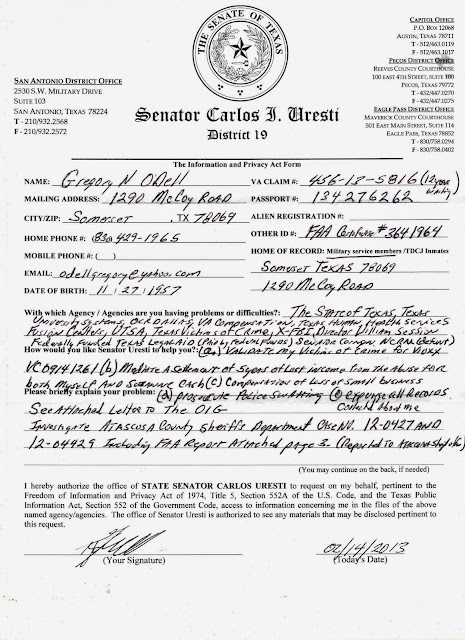 THE SENATE OF TEXAS
CAPITOL OFFICE
P.O. BOX 12068
AUSTIN, TEXAS 78711
T - 512/463.0119
F - 512/463.1017
PECOS DISTRICT OFFICE
REEVES COUNTY COURTHOUSE
100 EAST 4TH STREET, SUITE 100
PECOS, TEXAS 79772
T - 432/447.0270
F - 432/447.0275
EAGLE PASS DISTRICT OFFICE
MAVERICK COUNTY COURTHOUSE
501 EAST MAIN STREET, SUITE 114
EAGLE PASS, TEXAS 78852
T - 830/758.0294
F - 830/758.0402
SAN ANTONIO DISTRICT OFFICE
2530 S.W. MILITARY DRIVE
SUITE 103
SAN ANTONIO, TEXAS 78224
T - 210/932.2568
F - 210/932.2572
Senator Carlos I. Uresti
District 19
The Information and Privacy Act Form
NAME: Gregory N ODell VA CLAIM #: 456-13-5816 (12 years
MAILING ADDRESS: 1290 McCoy ROAD PASSPORT #: 134276262
CITY/ZIP: Somerset, TX 78069 ALIEN REGISTRATION #:
HOME PHONE #: (830) 429-1965 OTHER ID #: FAA Certificate # 3641964
MOBILE PHONE #: ( ) HOME OF RECORD: Military service members /TDCJ Inmates
EMAIL: odellgregory@yahoo.com Somerset Texas 78069
DATE OF BIRTH: 11 / 27 / 1957 1290 McCoy ROAD
With which Agency / Agencies are you having problems or difficulties?: The State of Texas, Texas
University Systems, DALLAS, VA Compensation, Texas Human Health Services
Fusion Centers, UTSA, Texas Victims of Crime, X-FBI, Director William Session
Federally Funded Texas Legal Aid
How would you like Senator Uresti to help you?: (a) VALIDATE My Victims of Crime for
VC09141261 (b) Mediate a Settlement of 5 years of Lost income from the Abuse for
both Myself and Suzanne Cash (c) Compensation of Lost of small business
Please briefly explain your problem: (d) prosecute Police (e) expunge all Records
See Attached Letter to The OIG Collected About me
Investigate ATASCOSA County Sheriffs Department Case NO. 12-0427 AND
12-04929 Including FAA Report Attached page 3. (Reported To
(You may continue on the back, if needed)
I hereby authorize the office of STATE SENATOR CARLOS URESTI to request on my behalf, pertinent to the
Freedom of Information and Privacy Act of 1974, Title 5, Section 552A of the U.S. Code, and the Texas Public
Information Act, Section 552 of the Government Code, access to information concerning me in the files of the above
named agency/agencies. The office of Senator Uresti is authorized to see any materials that may be disclosed pertinent to
this request.
02/14/2013
(Your Signature) (Today's Date)